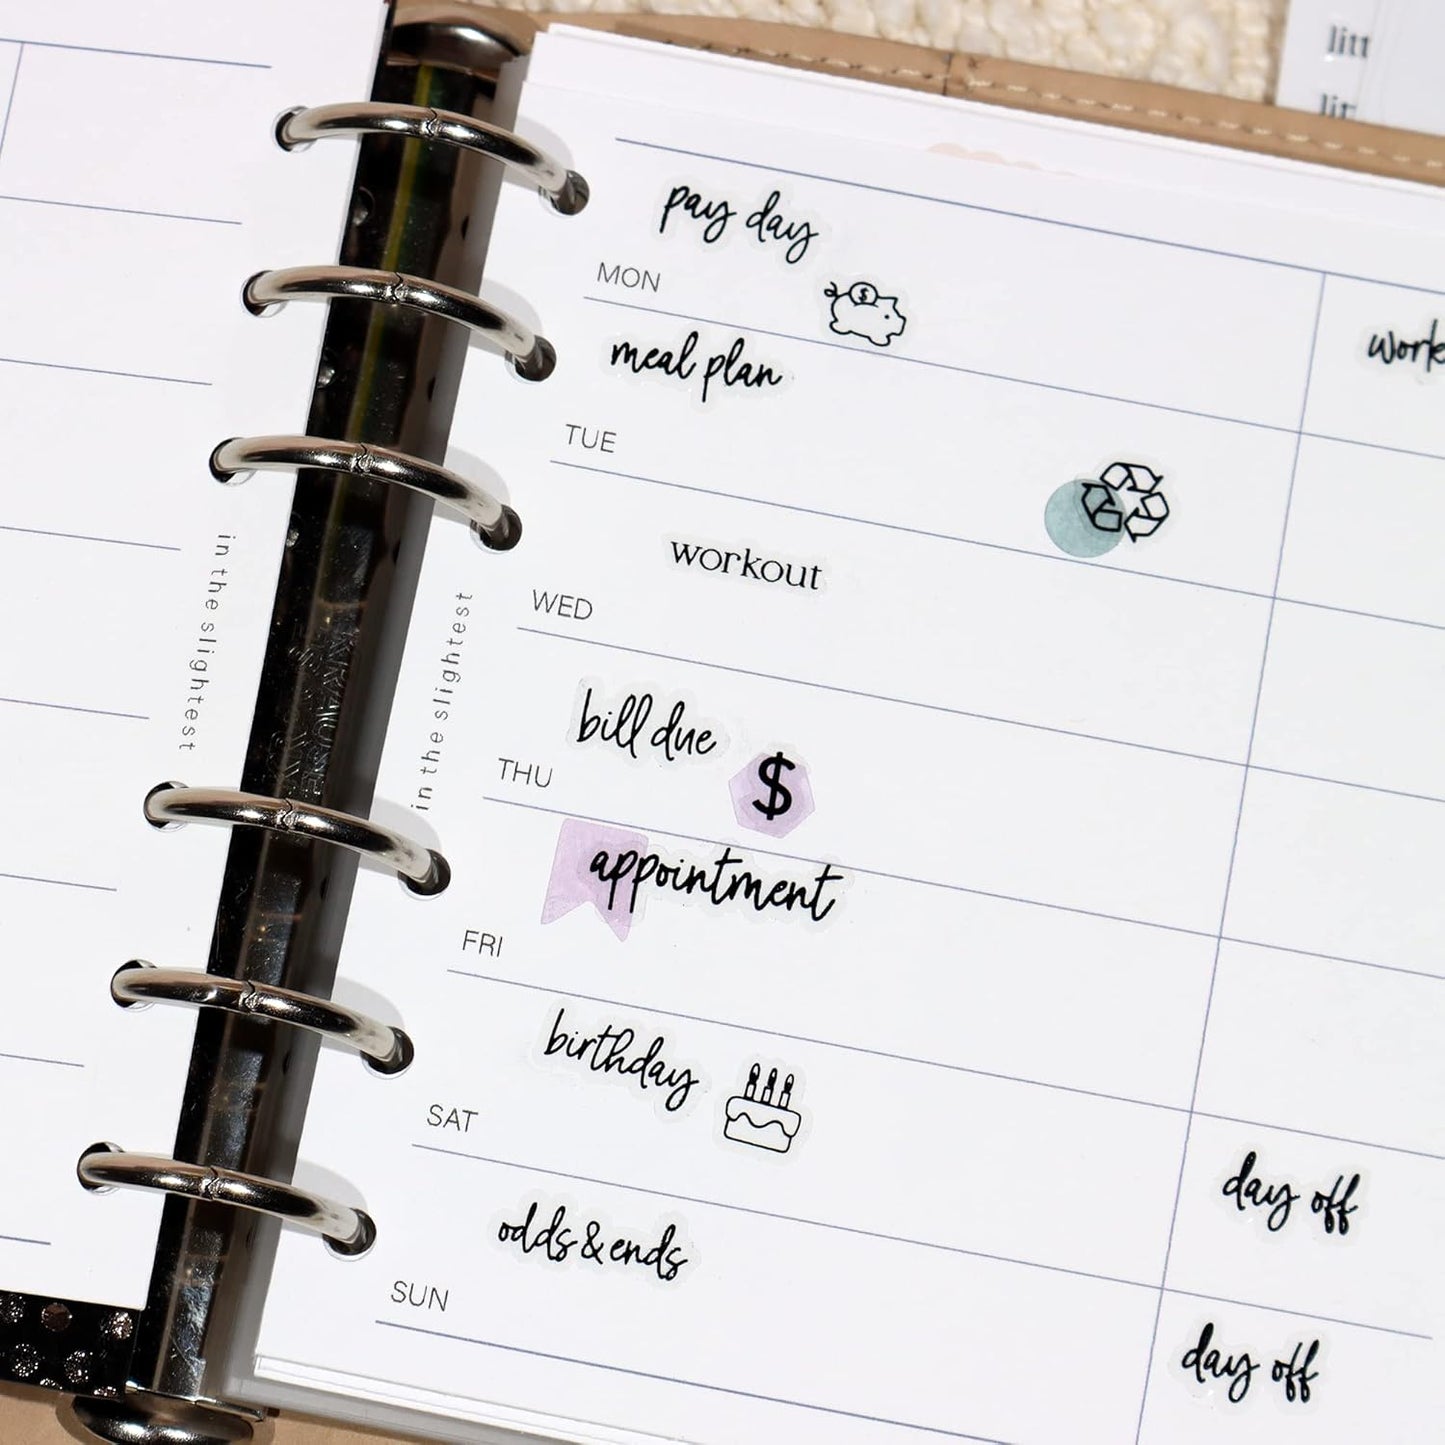 litt
pay day
MON
$
meal plan
work
TUE
workout
WED
bill due
$
THU
appointment
FRI
birthday
SAT
day off
odds & ends
SUN
day off
in the slightest
in the slightest
KRAUSE